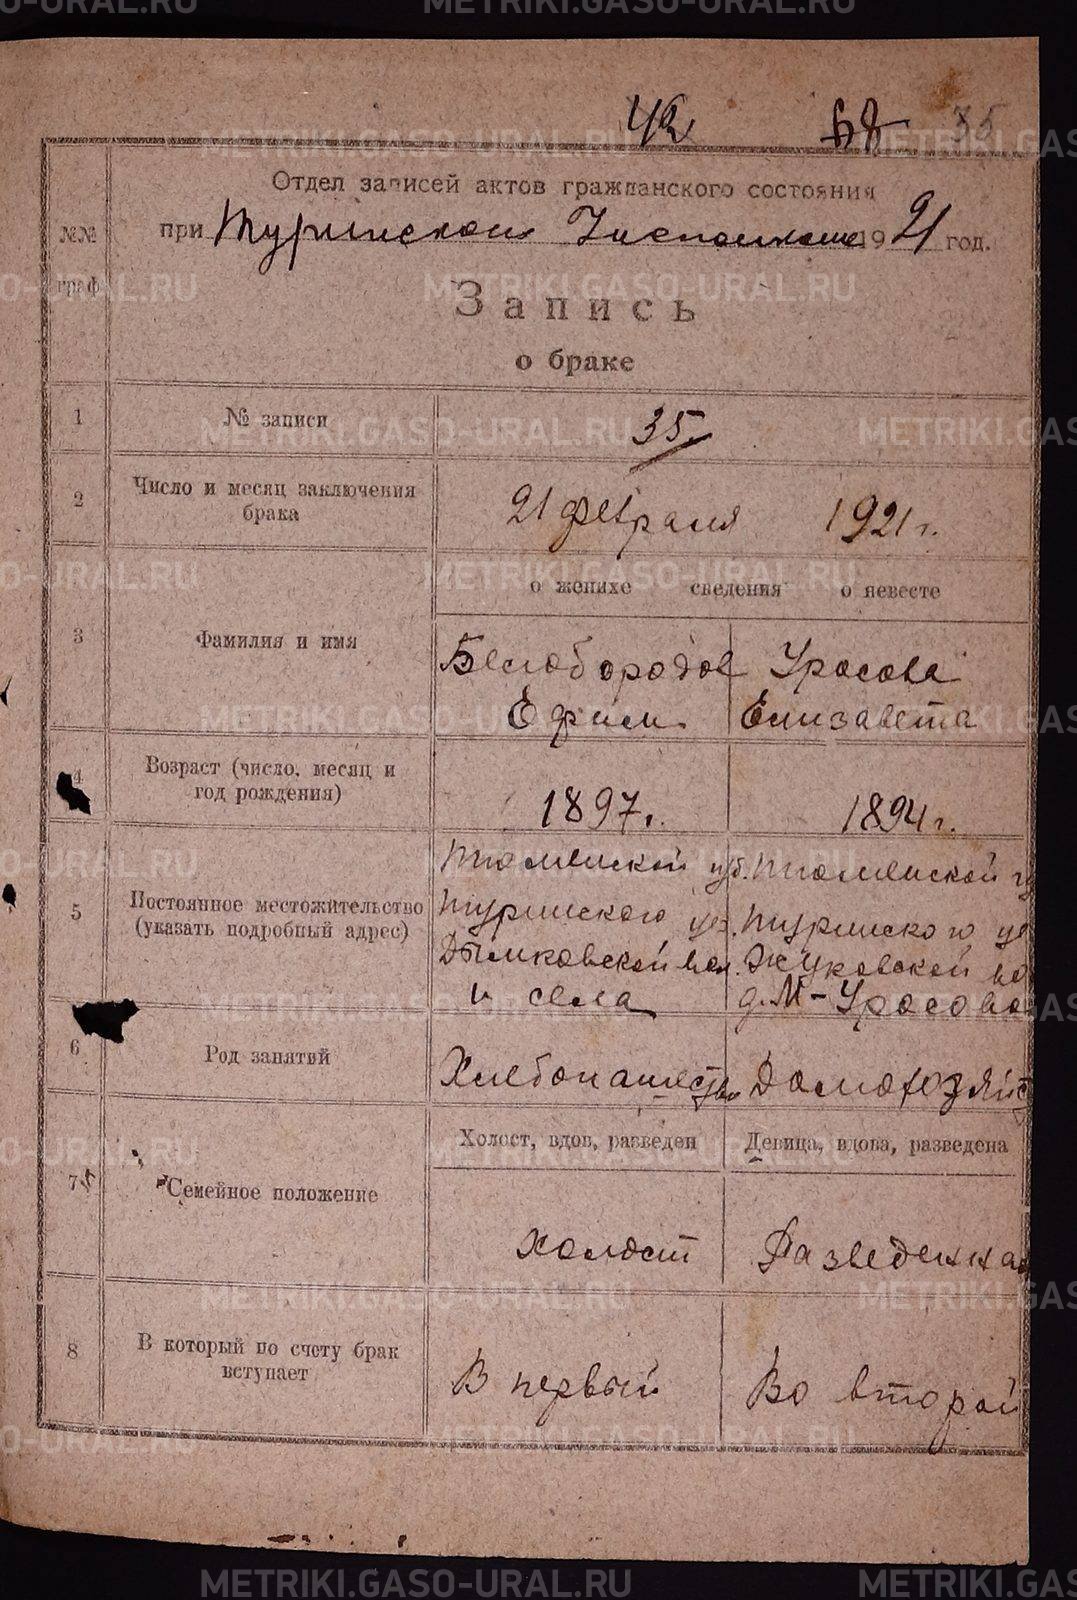 42 68 35
Отдел записей актов гражданского состояния
№№ граф
при Туринском Исполкоме 1921 год.
Запись
о браке
1 № записи 35
2 Число и месяц заключения брака 21 февраля 1921 г.
о женихе сведения о невесте
3 Фамилия и имя
Белобородов Уросова
Ефим Елизавета
4 Возраст (число, месяц и год рождения) 1897 г. 1894 г.
5 Постоянное местожительство (указать подробный адрес)
Тюменской губ. Тюменской гу
Туринского уез. Туринского уе
Дымковской вол. Жуковской во
и села д. М-Уросово
6 Род занятий Хлебопашество Домохозяйст
Холост, вдов, разведен Девица, вдова, разведена
7 Семейное положение холост Разведенная
8 В который по счету брак вступает В первый Во второй
METRIKI.GASO-URAL.RU